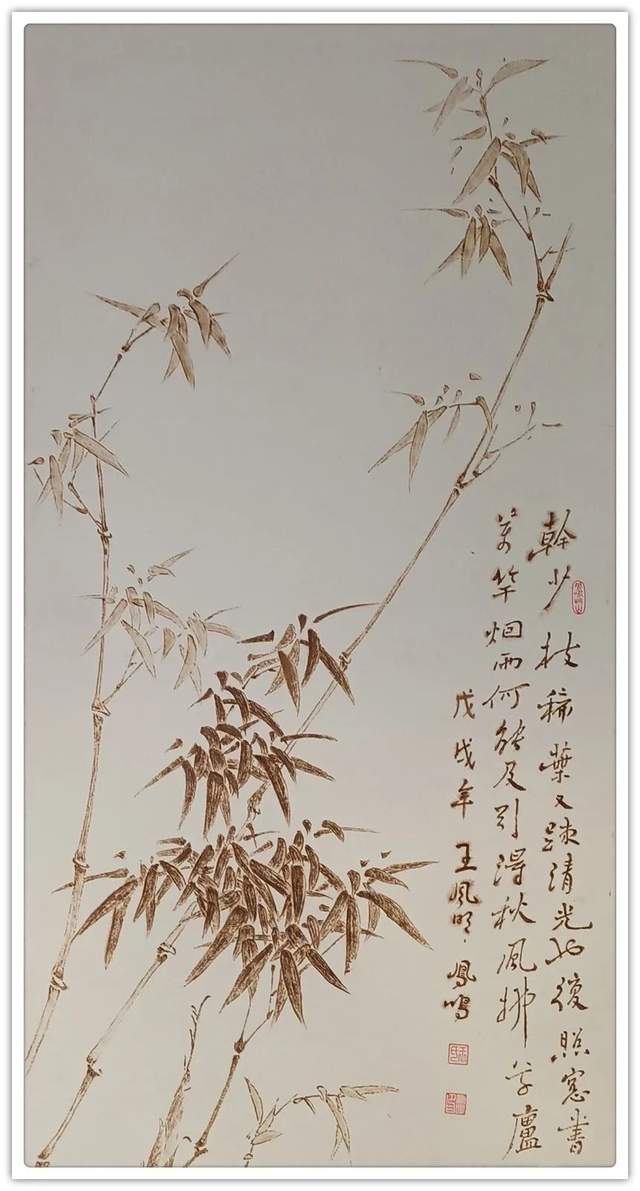 幹少枝稀葉又疎清光復照窓書
萬竿烟雨何能及引得秋風拂草廬
戊戌年王鳳明、鳳鳴